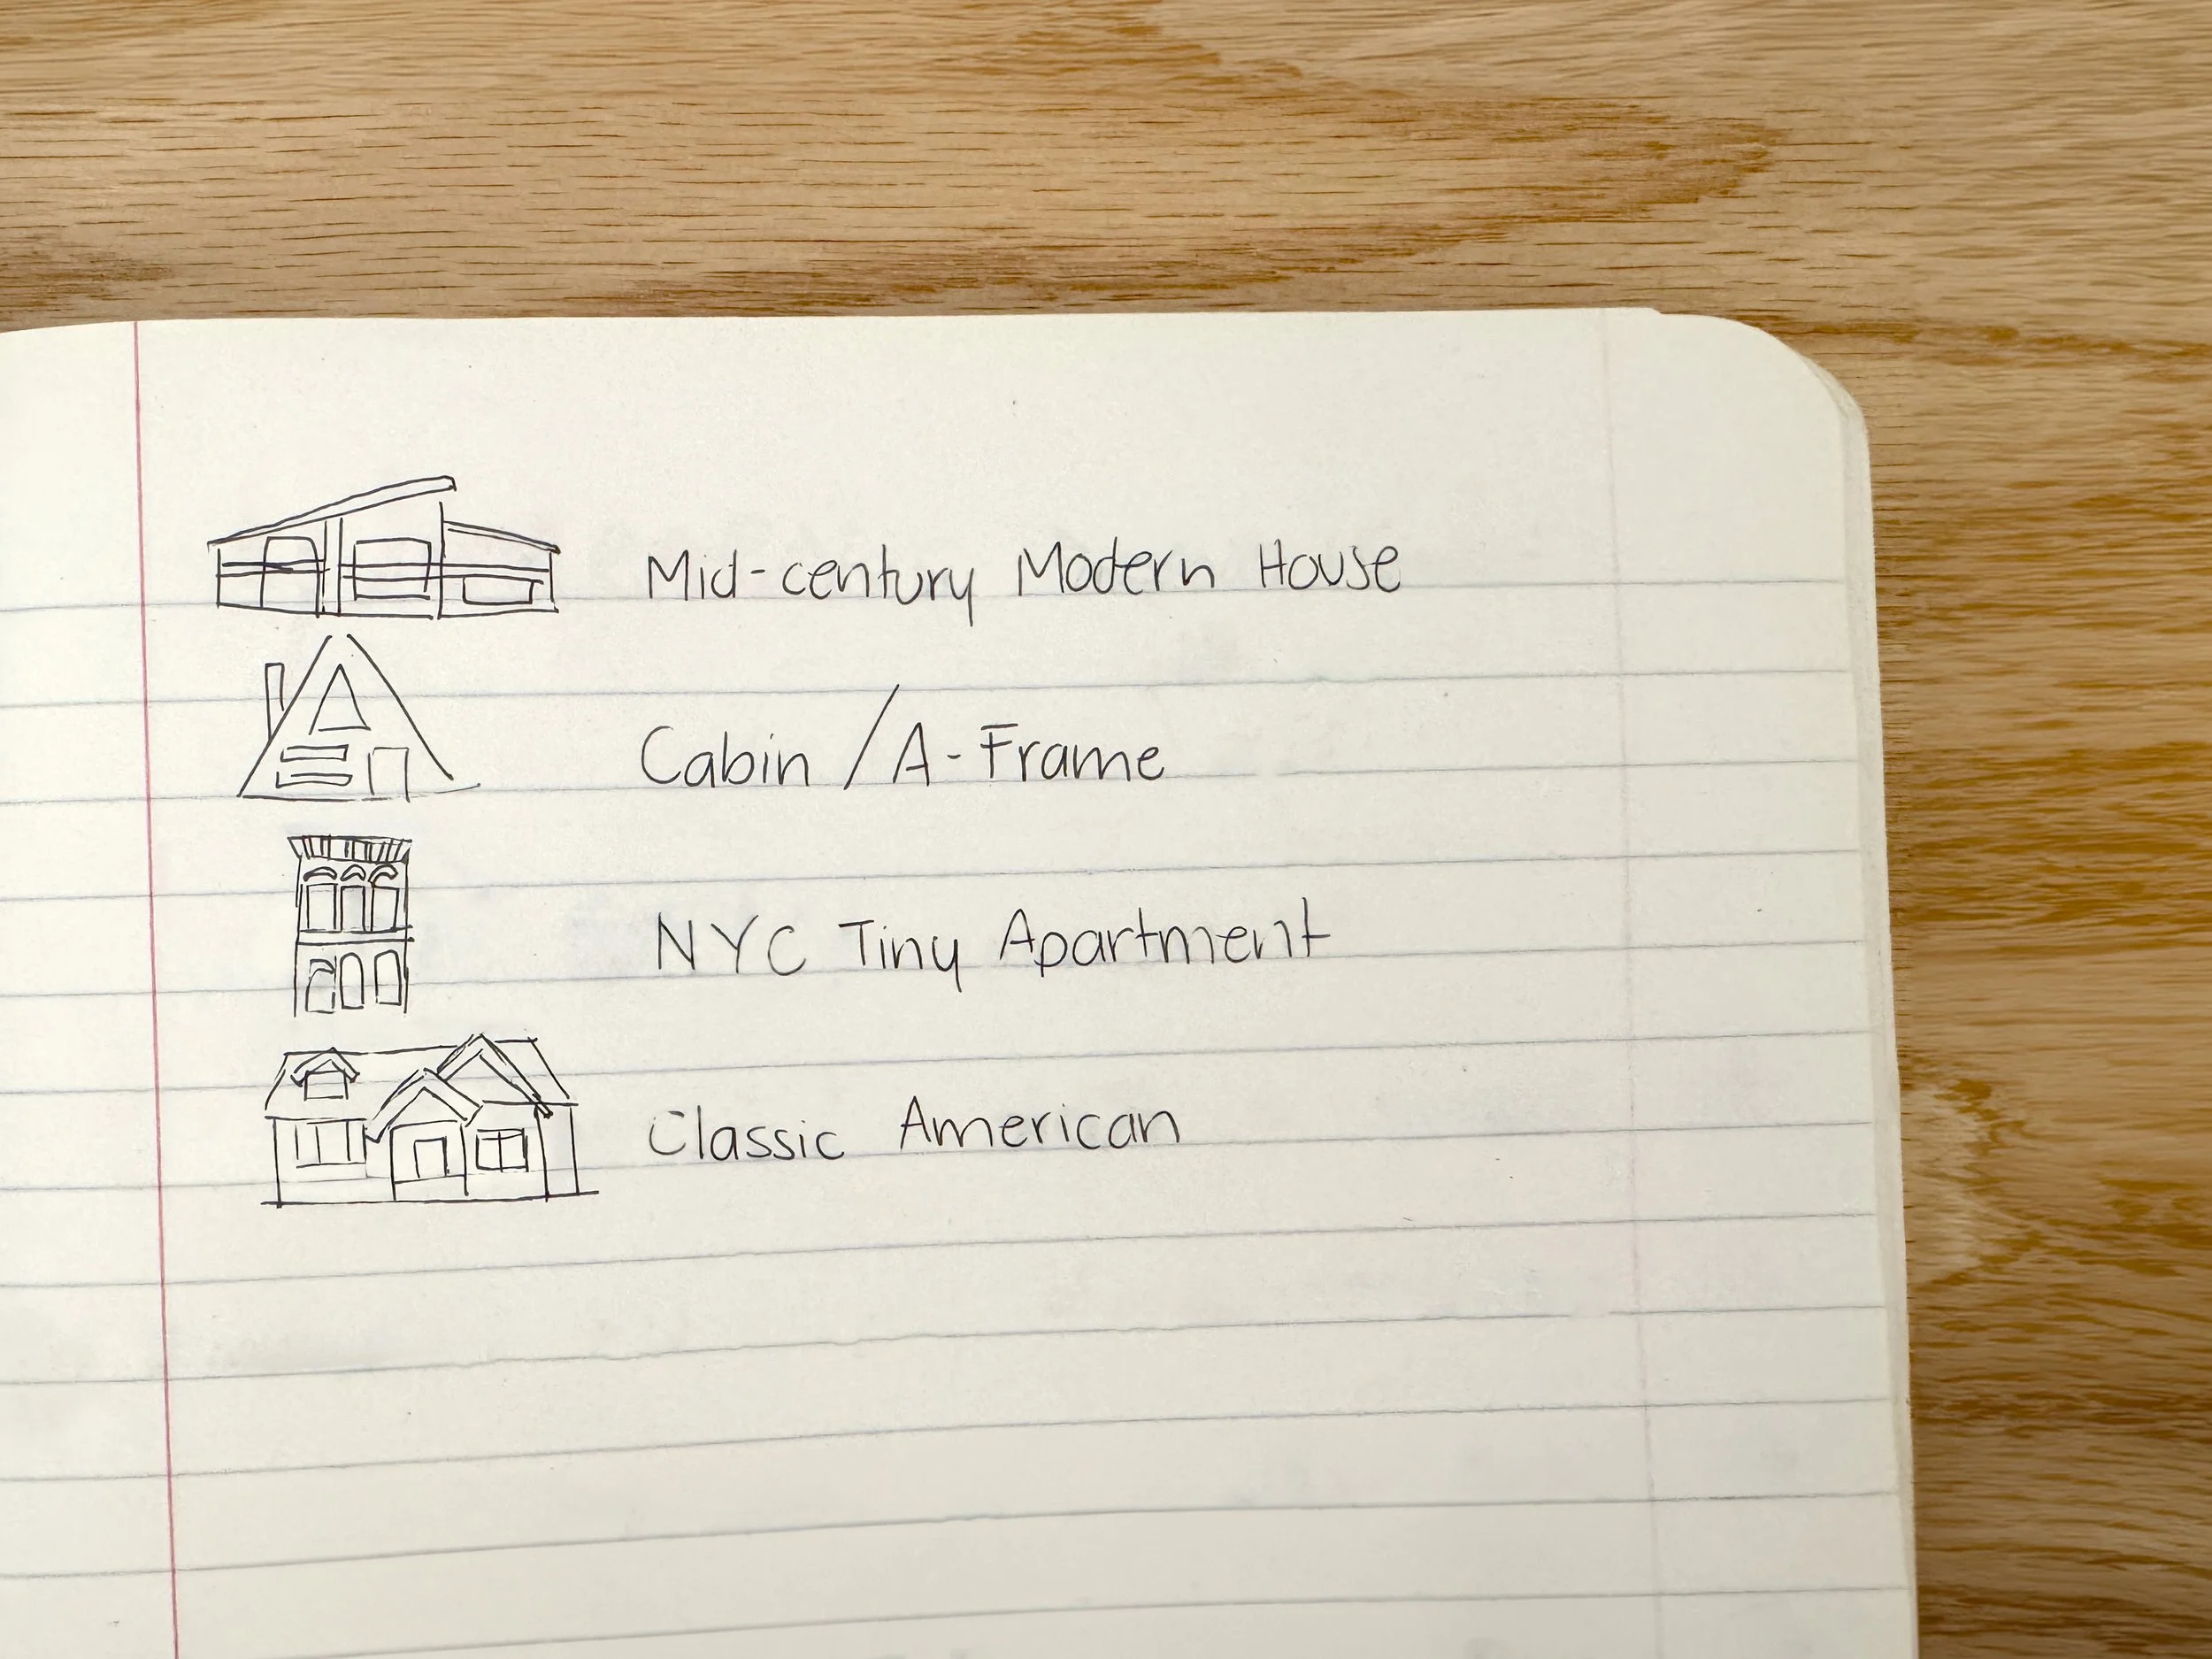 Mid-century Modern House
Cabin / A-Frame
NYC Tiny Apartment
Classic American